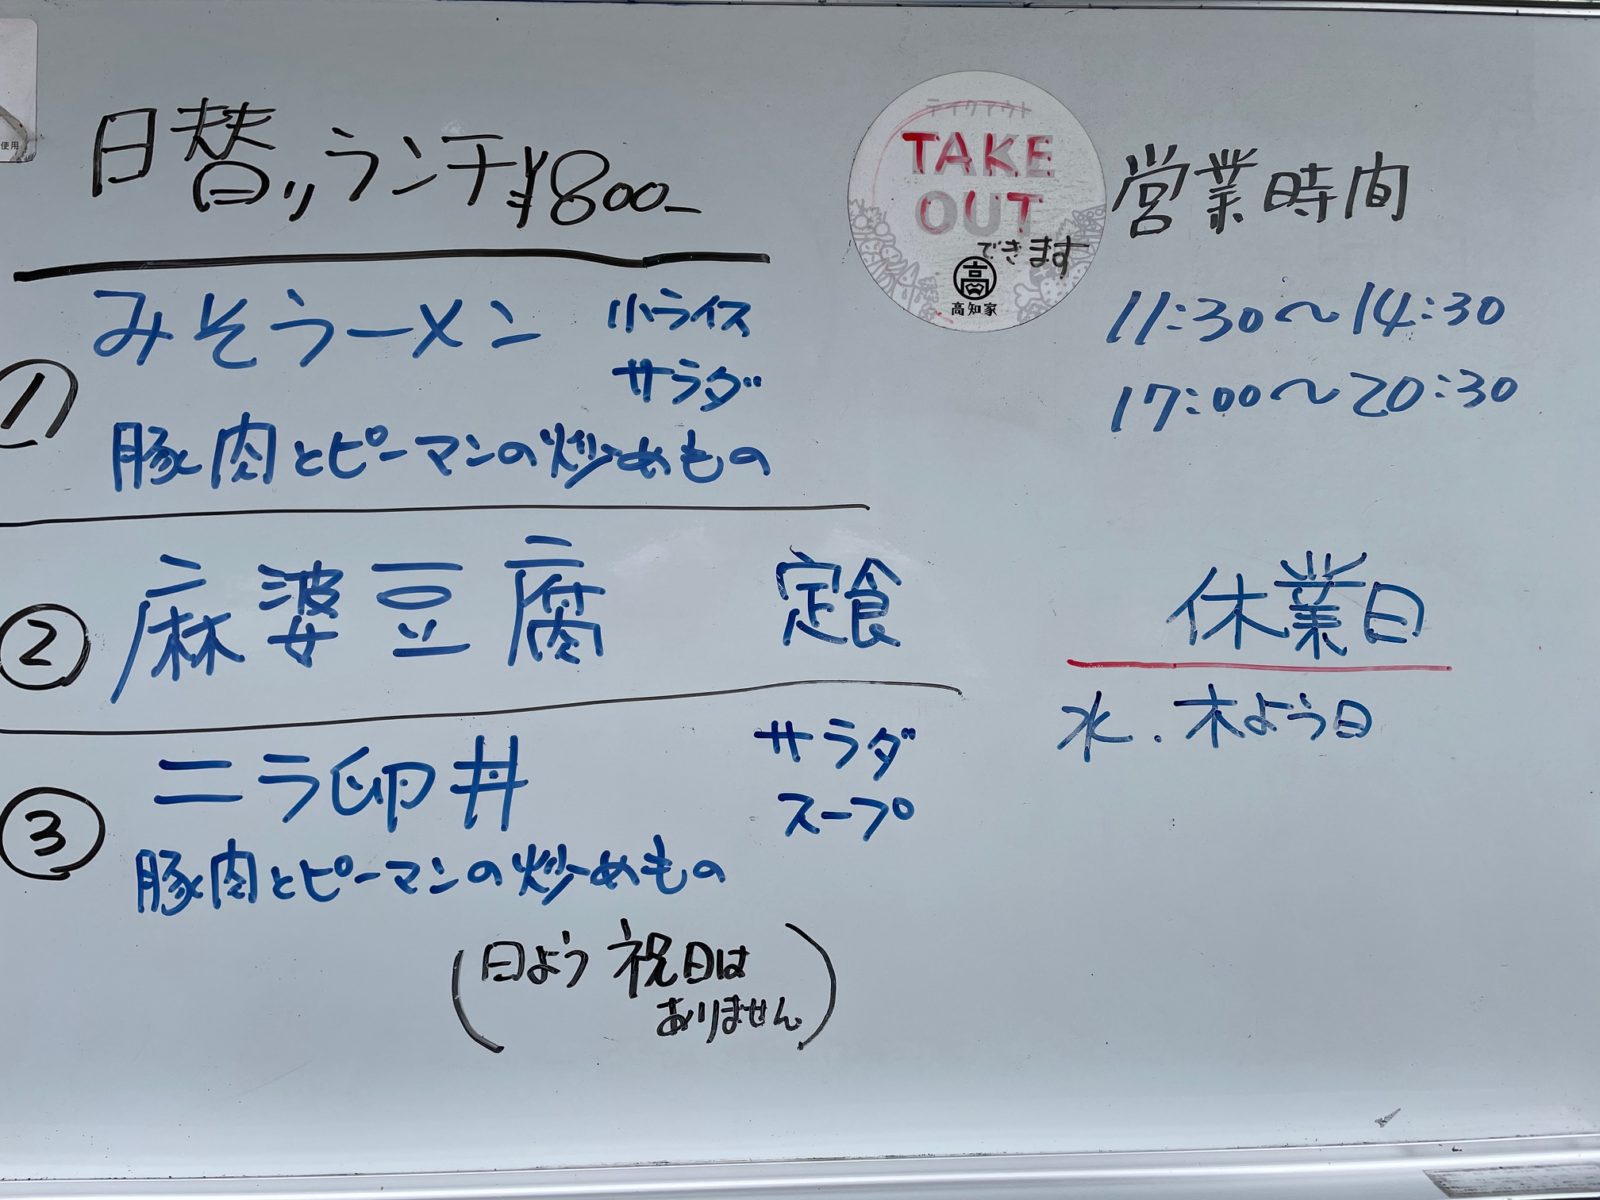 日替りランチ¥800-
みそラーメン 小ライス
サラダ
①
豚肉とピーマンの炒めもの
② 麻婆豆腐 定食
ニラ卵丼 サラダ
スープ
③
豚肉とピーマンの炒めもの
(日よう 祝日は
ありません)
テイクアウト
TAKE
OUT
できます
高
高知家
営業時間
11:30〜14:30
17:00〜20:30
休業日
水.木よう日
使用